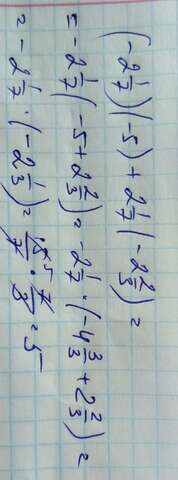 (-2 1/7)(-5) + 2 1/7 (-2 2/3) =
= -2 1/7 (-5 + 2 2/3) = -2 1/7 · (-4 3/3 + 2 2/3) =
= -2 1/7 · (-2 1/3) = 15/7 · 7/3 = 5